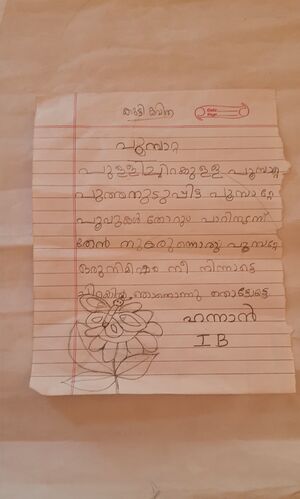 കുട്ടി കവിത
Date:
Page:
പൂമ്പാറ്റ
പുള്ളിച്ചിറകുള്ള പൂമ്പാറ്റ
പുത്തനുടുപ്പിട്ട പൂമ്പാറ്റേ
പൂവുകൾ തോറും പാറിനടന്ന്
തേൻ നുകരുന്നൊരു പൂമ്പാറ്റേ
ഒരുനിമിഷം നീ നിന്നാട്ടെ
ചിറകിൽ ഞാനൊന്നു തൊട്ടോട്ടെ
ഹന്നാൻ
I B